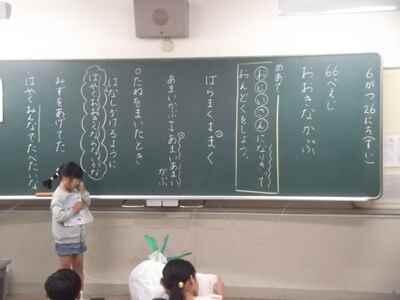 6がつ26にち(すい)
66ぺえじ
おおきなかぶ
めあて
おじいさんになりきって
おんどくをしよう。
ばらまくまく
あまいあまい
かぶ
○たねをまいたとき
はなしかけるように
はやくおおきく
みずをあげてた
はやくみんなでたべたいな